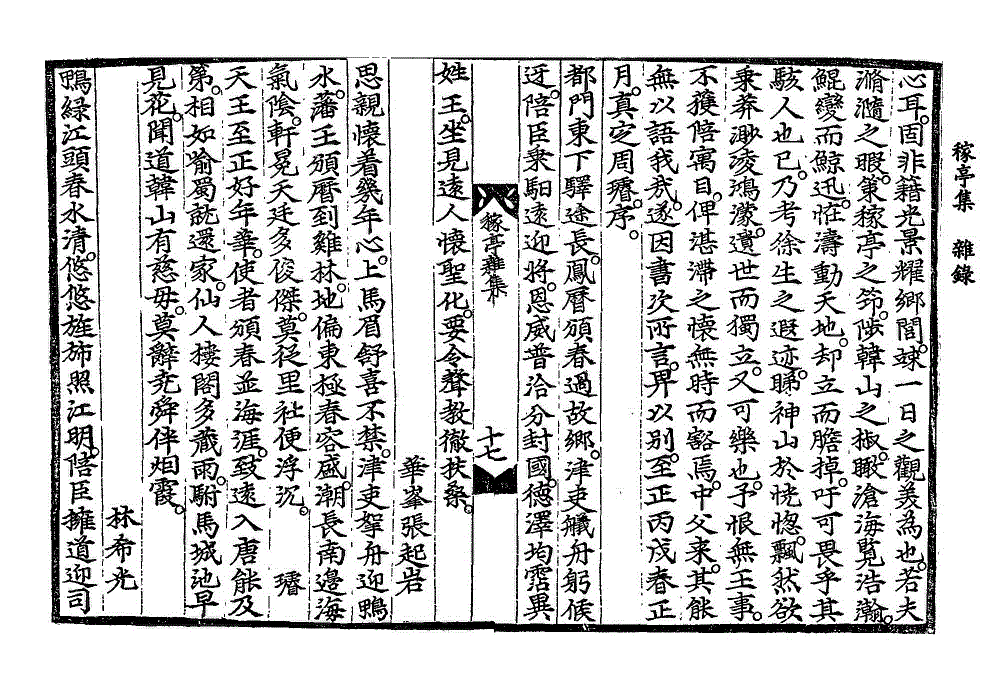 稼亭集　雜錄
心耳。固非籍光景耀鄉閭。竢一日之觀羡爲也。若夫
滫瀡之暇。策稼亭之筇。陟韓山之椒。瞰滄海覽浩瀚。
鯤變而鯨迅。恠濤動天地。却立而膽掉。吁可畏乎其
駭人也已。乃考徐生之遐迹。睇神山於恍惚。飄然欲
乘莽渺凌鴻濛。遺世而獨立。又可樂也。予恨無王事。
不獲陪寓目。俾湛滯之懷無時而豁焉。中父來。其能
無以語我哉。遂因書次所言。畀以別。至正丙戌春正
月。眞定周璿。序。
都門東下驛途長。鳳曆頒春過故鄉。津吏艤舟躬候
迓。陪臣乘馹遠迎將。恩威普洽分封國。德澤均霑異
稼亭雜集　十七
姓王。坐見遠人懷聖化。要令聲教徹扶桑。
華峯張起岩
思親懷着幾年心。上馬眉舒喜不禁。津吏拏舟迎鴨
水。藩王頒曆到雞林。地偏東極春容盛。潮長南邊海
氣陰。軒冕天廷多俊傑。莫從里社便浮沉。　璿
天王至正好年華。使者頒春並海涯。致遠入唐能及
第。相如喻蜀就還家。仙人樓閣多藏雨。駙馬城池早
見花。聞道韓山有慈母。莫辭堯舜伴烟霞。
林希光
鴨綠江頭春水清。悠悠旌斾照江明。陪臣擁道迎司